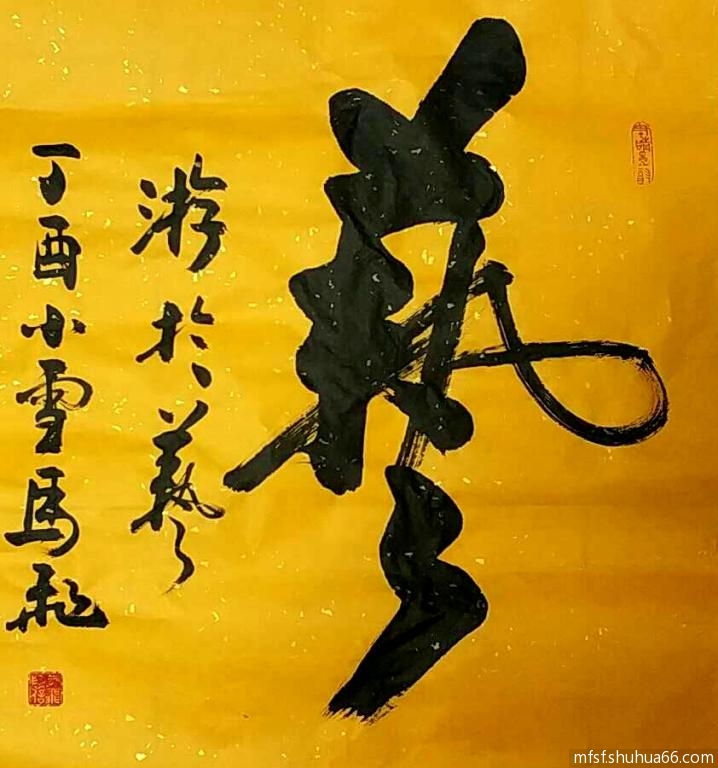 藝
游於藝
丁酉小雪馬飛
mfsf.shuhua66.com